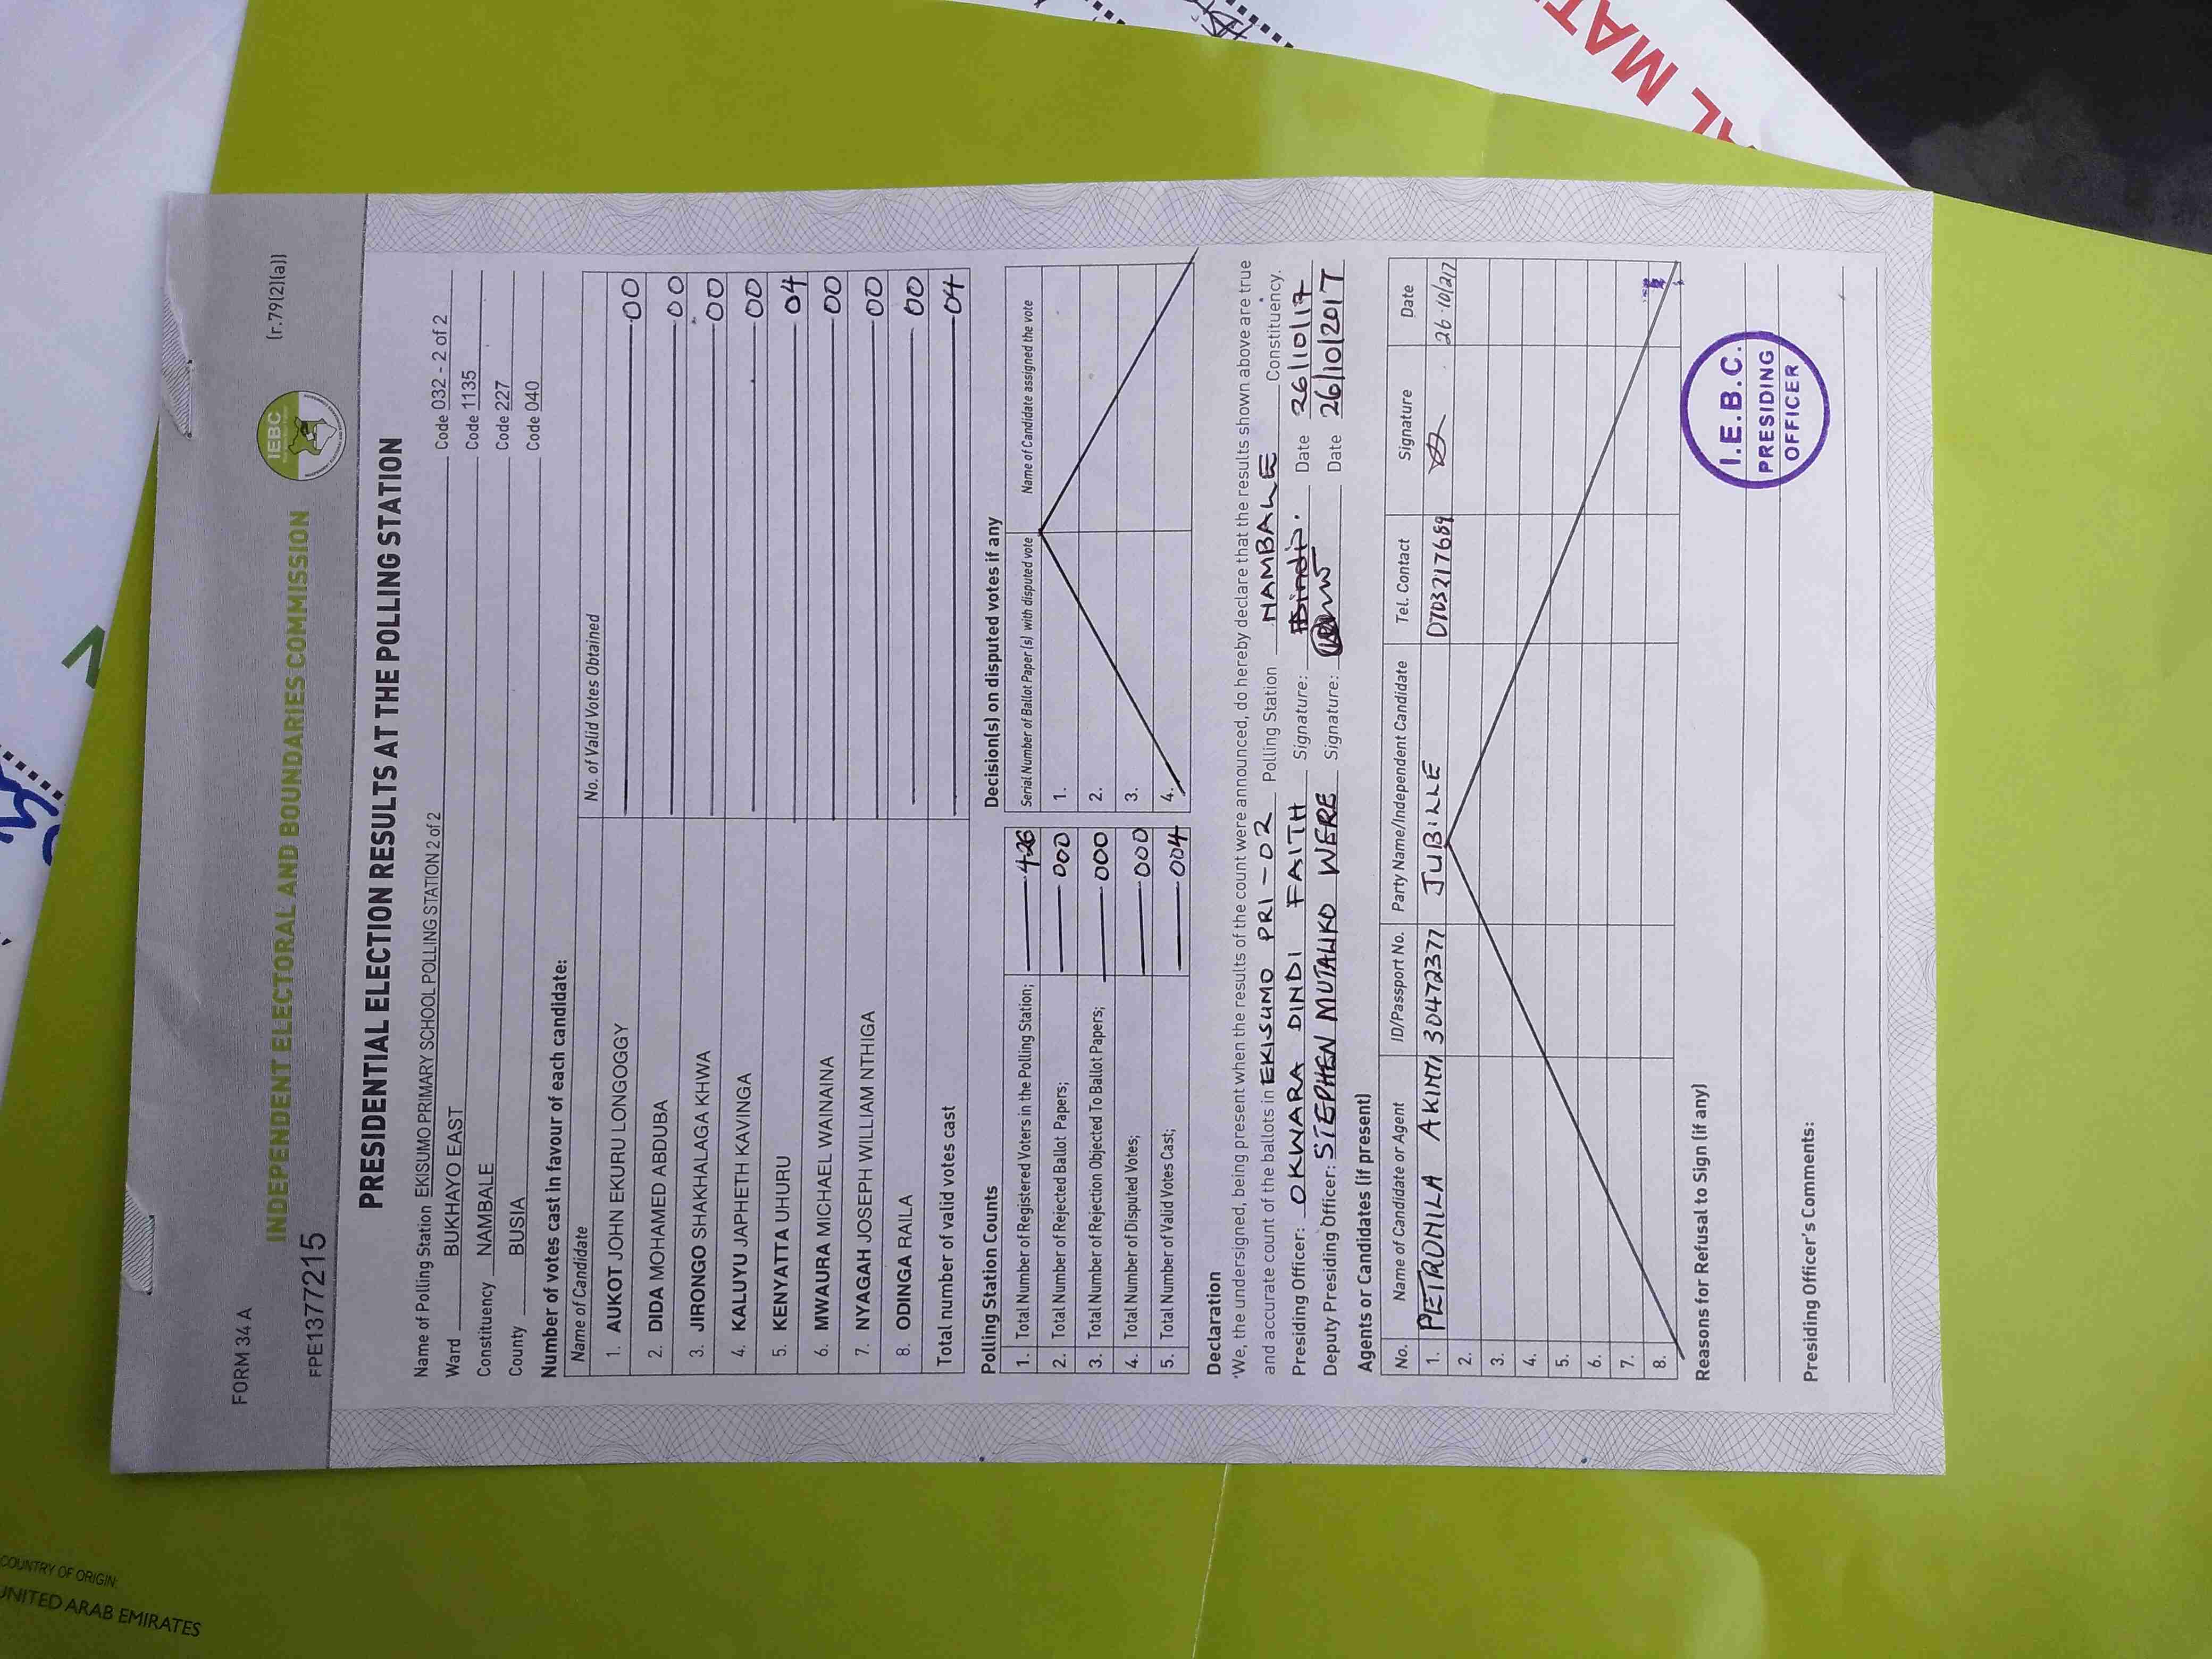 FORM 34 A
(r.79(2)(a))
INDEPENDENT ELECTORAL AND BOUNDARIES COMMISSION
IEBC
FPE1377215
PRESIDENTIAL ELECTION RESULTS AT THE POLLING STATION
Name of Polling Station EKISUMO PRIMARY SCHOOL POLLING STATION 2 of 2 Code 032 - 2 of 2
Ward BUKHAYO EAST Code 1135
Constituency NAMBALE Code 227
County BUSIA Code 040
Number of votes cast in favour of each candidate:
Name of Candidate No. of Valid Votes Obtained
1. AUKOT JOHN EKURU LONGOGGY 00
2. DIDA MOHAMED ABDUBA 00
3. JIRONGO SHAKHALAGA KHWA 00
4. KALUYU JAPHETH KAVINGA 00
5. KENYATTA UHURU 04
6. MWAURA MICHAEL WAINAINA 00
7. NYAGAH JOSEPH WILLIAM NTHIGA 00
8. ODINGA RAILA 00
Total number of valid votes cast 04
Polling Station Counts
1. Total Number of Registered Voters in the Polling Station;
2. Total Number of Rejected Ballot Papers; 000
3. Total Number of Rejection Objected To Ballot Papers; 000
4. Total Number of Disputed Votes; 000
5. Total Number of Valid Votes Cast; 004
Decision(s) on disputed votes if any
Serial Number of Ballot Paper (s) with disputed vote Name of Candidate assigned the vote
1.
2.
3.
4.
Declaration
'We, the undersigned, being present when the results of the count were announced, do hereby declare that the results shown above are true
and accurate count of the ballots in EKISUMO PRI - 02 Polling Station NAMBALE Constituency.
Presiding Officer: OKWARA DINDI FAITH Signature: Date 26/10/17
Deputy Presiding Officer: STEPHEN MUTALIKO WERE Signature: Date 26/10/2017
Agents or Candidates (if present)
No. Name of Candidate or Agent ID/Passport No. Party Name/Independent Candidate Tel. Contact Signature Date
1. PETRONILA 30472377 JUBILLE 0703217689
2.
3.
4.
5.
6.
7.
8.
Reasons for Refusal to Sign (if any)
I.E.B.C.
PRESIDING
OFFICER
Presiding Officer's Comments:
COUNTRY OF ORIGIN:
UNITED ARAB EMIRATES